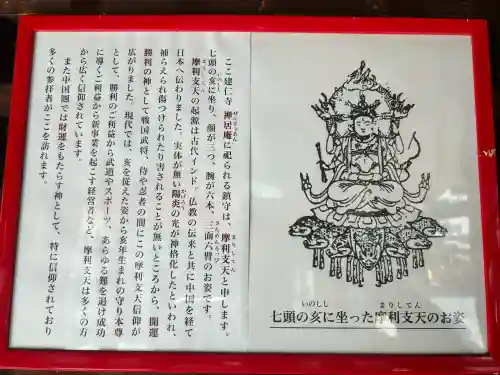 ここ建仁寺 禅居庵に祀られる鎮守は、摩利支天と申します。
七頭の亥に坐り、顔が三つ、腕が六本、三面六臂のお姿です。
摩利支天の起源は古代インド。仏教の伝来と共に中国を経て
日本へ伝わりました。実体が無い陽炎の光が神格化したといわれ、
捕らえられ傷つけられたり害されることが無いところから、開運
勝利の神として戦国武将、侍や忍者の間にここの摩利支天信仰が
広がりました。現代では、亥を従えた姿から亥年生まれの守り本尊
として、勝利のご利益から武道やスポーツ、あらゆる難を退け成功
に導くご利益から新事業を起こす経営者など、摩利支天は多くの方
から広く信仰されています。
また中国圏では財運をもたらす神として、特に信仰されており
多くの参拝者がここを訪れます。
七頭の亥に坐った摩利支天のお姿